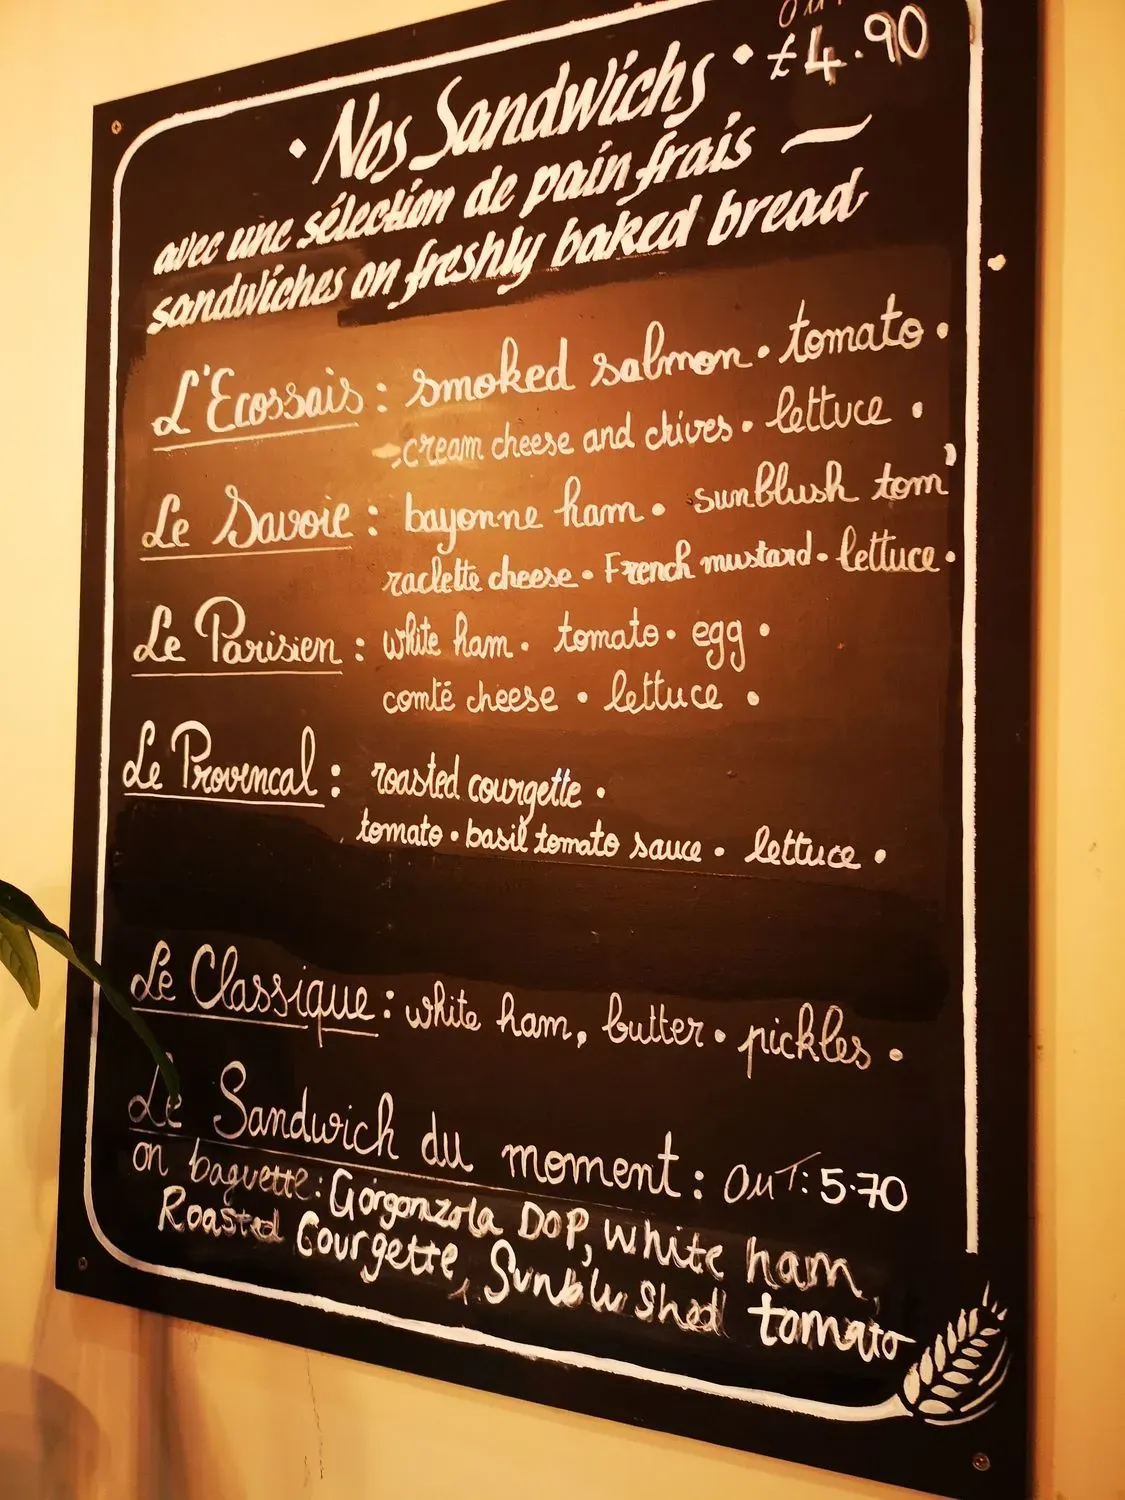 • Nos Sandwichs • £4.90
avec une sélection de pain frais —
sandwiches on freshly baked bread
L'Ecossais : smoked salmon • tomato •
cream cheese and chives • lettuce •
Le Savoie : bayonne ham • sunblush tom'
raclette cheese • French mustard • lettuce •
Le Parisien : white ham • tomato • egg •
comté cheese • lettuce •
Le Provencal : roasted courgette •
tomato • basil tomato sauce • lettuce •
Le Classique : white ham, butter • pickles •
Le Sandwich du moment : OUT: 5.70
on baguette: Gorgonzola DOP, white ham,
Roasted Courgette, Sunblushed tomato